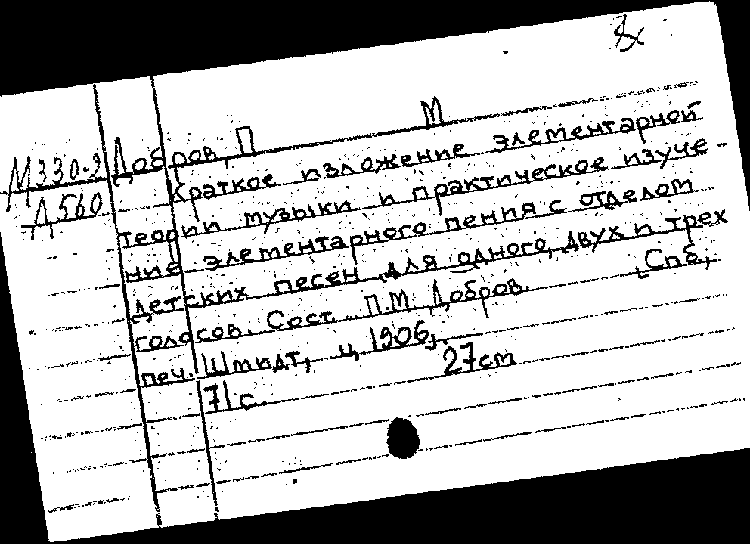 М330-3 Добров, П М
Д560 Краткое изложение элементарной
теории музыки и практическое изуче-
ние элементарного пения с отделом
детских песен для одного, двух и трех
голосов. Сост. П.М. Добров. Спб,
печ. Шмидт, ц. 1906,
71 с. 27см